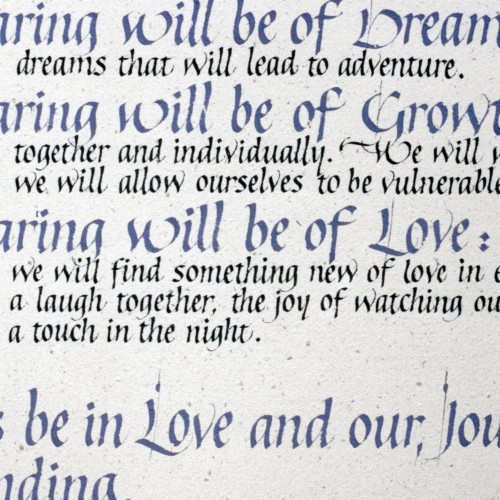 aring will be of Dream
dreams that will lead to adventure.
aring will be of Growt
together and individually. We will w
we will allow ourselves to be vulnerable
aring will be of Love:
we will find something new of love in e
a laugh together, the joy of watching ou
a touch in the night.
s be in Love and our, Jou
nding.